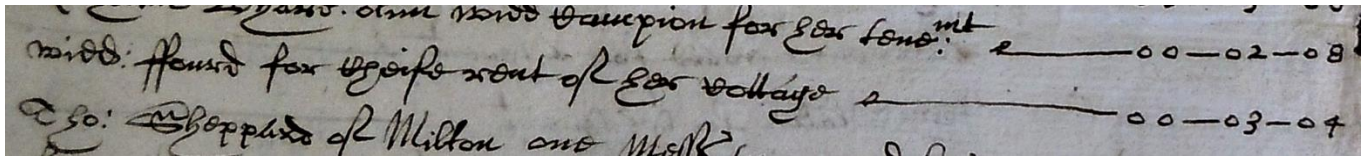 Ann widd Campion for her tenem:t — 00—02—08
widd: ffourd for Cheife rent of her Cottage — 00—03—04
Tho: Sheppard of Milton one Mess